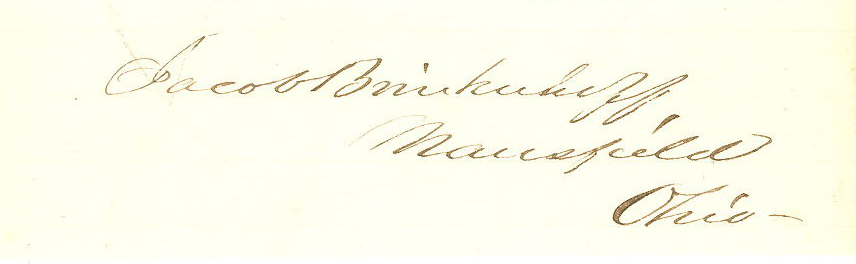 Jacob Brinkerhoff
Mansfield
Ohio-